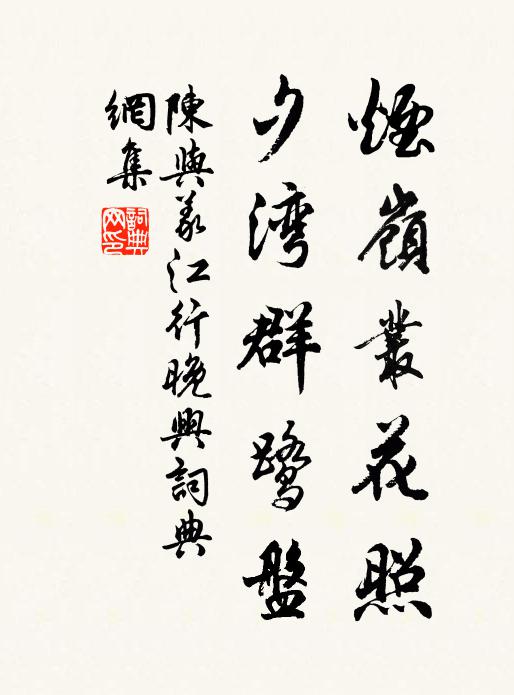 煙嶺叢花照
夕灣群鷺盤
陳與義江行晚興詞典
網集
詞典網印